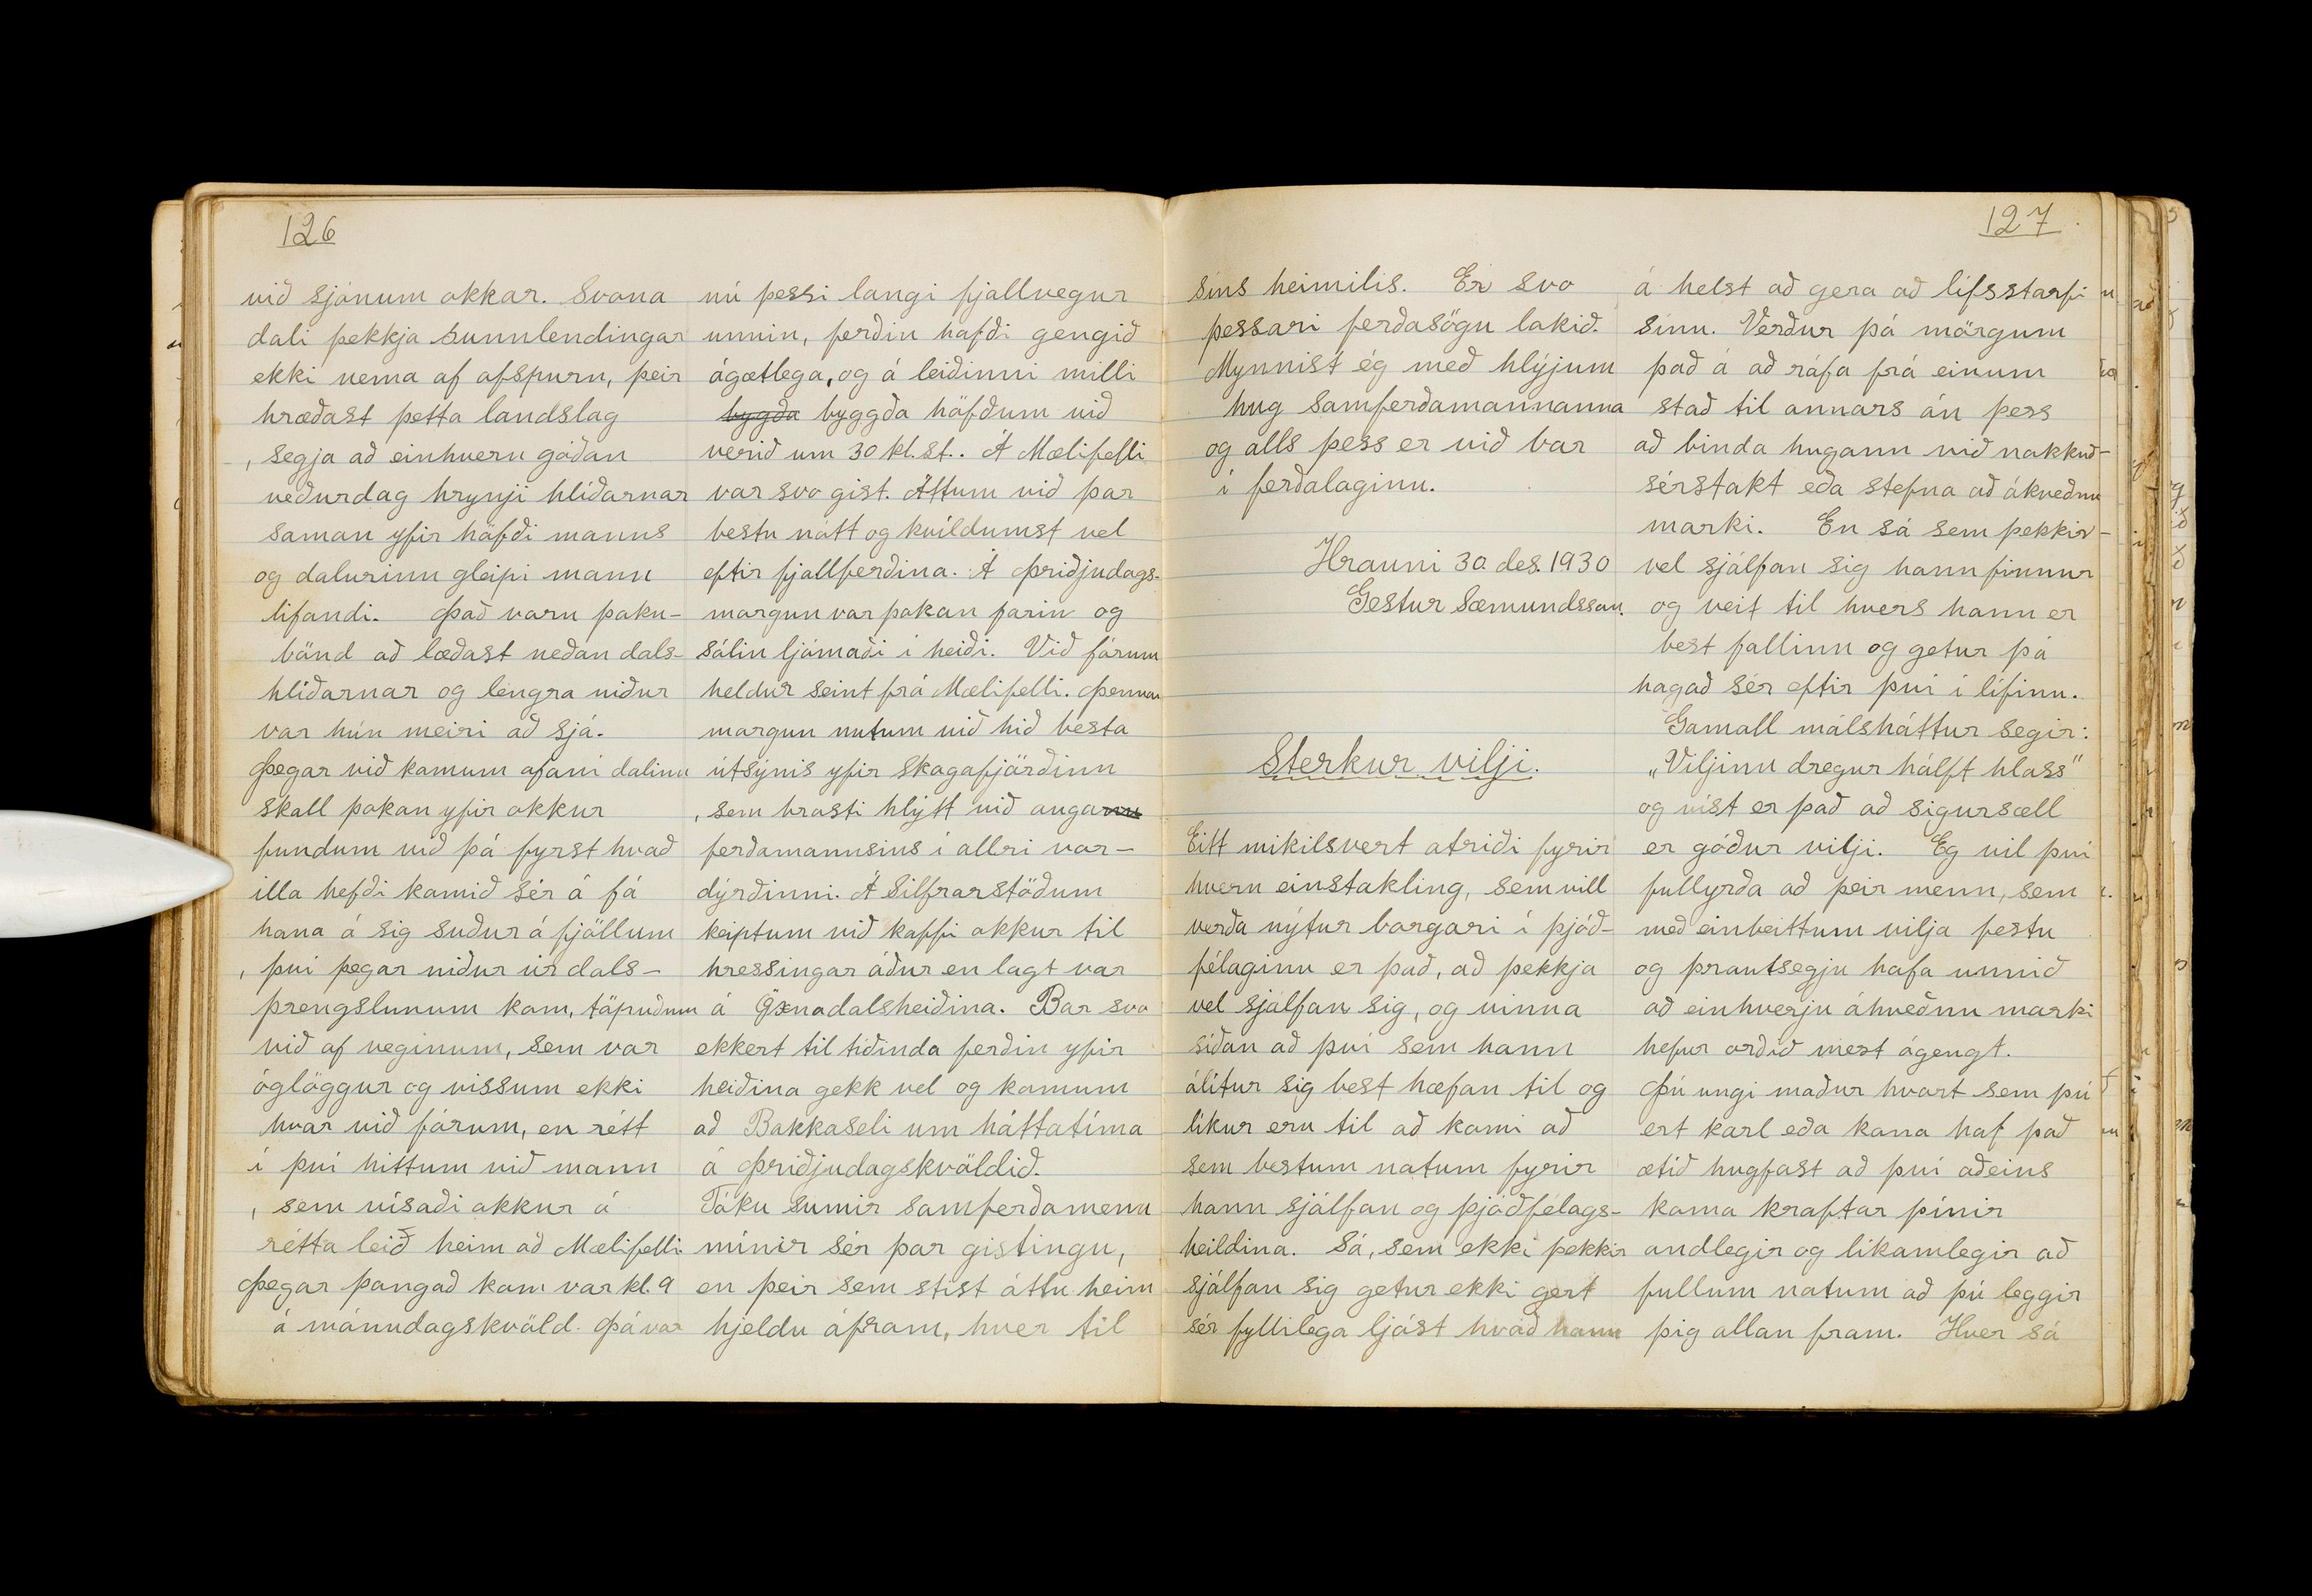 126
við sjónum okkar. Svona
dali þekkja sunnlendingar
ekki nema af afspurn, þeir
hræðast þetta landslag
, segja að einhvern góðan
veðurdag hrynji hlíðarnar
saman yfir höfði manns
og dalurinn gleipi mann
lifandi. Það voru þoku-
bönd að læðast neðan dals-
hlíðarnar og lengra niður
var hún meiri að sjá.
Þegar við komum ofaní dalinn
skall þokan yfir okkur
fundum við þá fyrst hvað
illa hefði komið sér á fá
hana á sig suður á fjöllum
, því þegar niður úr dals-
þrengslunum kom, töpuðum
við af veginum, sem var
óglöggur og vissum ekki
hvar við fórum, en rétt
í því hittum við mann
, sem vísaði okkur á
rétta leið heim að Mælifelli.
Þegar þangað kom var kl. 9
á mánudagskvöld. Þá var
nú þessi langi fjallvegur
unnin, ferðin hafði gengið
ágætlega, og á leiðinni milli
bygða byggða höfðum við
verið um 30 kl.st.. Á Mælifelli
var svo gist. Áttum við þar
bestu nótt og kvíldumst vel
eftir fjallferðina. Á þriðjudags-
morgun var þokan farin og
sólin ljómaði í heiði. Við fórum
heldur seint frá Mælifelli. Þennan
morgun nutum við hið besta
útsýnis yfir Skagafjörðinn
, sem brosti hlýtt við auga
ferðamannsins í allri vor-
dýrðinni. Á Silfrarstöðum
keiptum við kaffi okkur til
hressingar áður en lagt var
á Öxnadalsheiðina. Bar svo
ekkert til tíðinda ferðin yfir
heiðina gekk vel og komum
að Bakkaseli um háttatíma
á þriðjudagskvöldið.
Tóku sumir samferðamenn
mínir sér þar gistingu,
en þeir sem stist áttu heim
hjeldu áfram, hver til
127
síns heimilis. Er svo
þessari ferðasögu lokið.
Mynnist ég með hlýjum
hug samferðamannanna
og alls þess er við bar
í ferðalaginu.
Hrauni 30. des. 1930
Gestur Sæmundsson.
Sterkur vilji.
Eitt mikilsvert atriði fyrir
hvern einstakling, sem vill
verða nýtur borgari í þjóð-
félaginu er það, að þekkja
vel sjálfan sig, og vinna
síðan að því sem hann
álítur sig best hæfan til og
líkur eru til að komi að
sem bestum notum fyrir
hann sjálfan og þjóðfélags-
heildina. Sá, sem ekki þekkir
sjálfan sig getur ekki gert
sér fyllilega ljóst hvað hann
á helst að gera að lífsstarfi
sínu. Verður þá mörgum
það á að ráfa frá einum
stað til annars án þess
að binda hugann við nokkuð-
sérstakt eða stefna að ákveðnu
marki. En sá sem þekkir-
vel sjálfan sig hann finnur
og veit til hvers hann er
best fallinn og getur þá
hagað sér eftir því í lífinu.
Gamall málsháttur segir:
„Viljinn dregur hálft hlass"
og víst er það að sigursæll
er góður vilji. Eg vil því
fullyrða að þeir menn, sem
með einbeittum vilja festu
og þrautsegju hafa unnið
að einhverju áhveðnu marki
hefur orðið mest ágengt.
Þú ungi maður hvort sem þú
ert karl eða kona haf það
ætíð hugfast að því aðeins
koma kraftar þínir
andlegir og líkamlegir að
fullum notum að þú leggir
þig allan fram. Hver sá